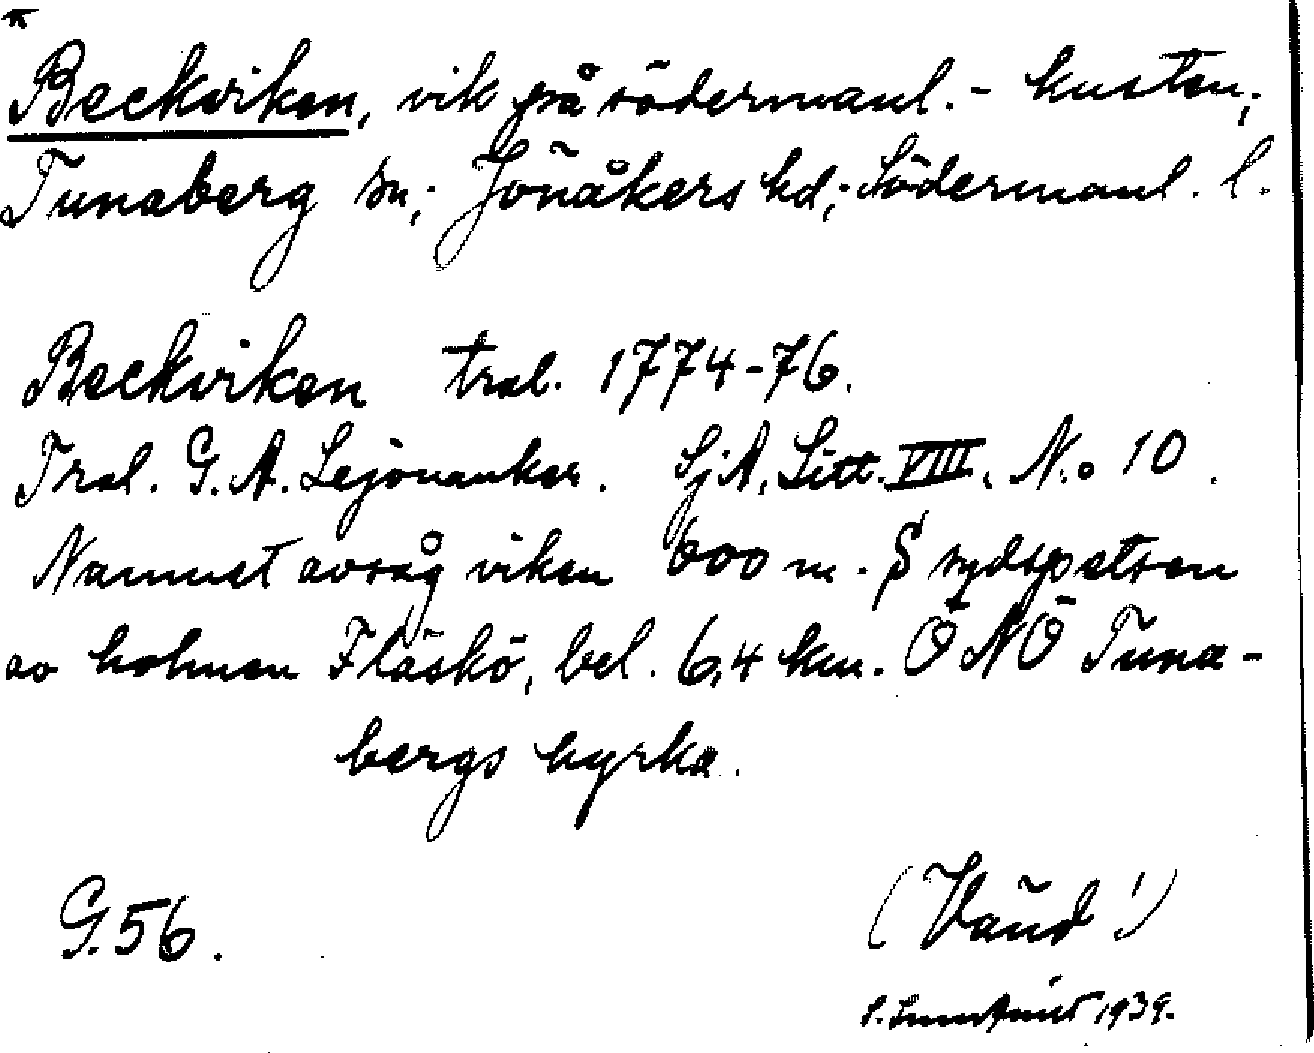 Beckviken, vik på södermanl.- kusten;
Tunaberg sn; Jönåkers hd; Södermanl. l.
Beckviken tral. 1774-76.
Tral. G. A. Lejonanker. SjA, Litt. VIII. N:o 10.
Namnet avsåg viken 600 m. S sydspetsen
av holmen Fläskö, bel. 6,4 km. ÖNÖ Tuna-
bergs kyrka.
G.56.
(Vänd!)
1939.